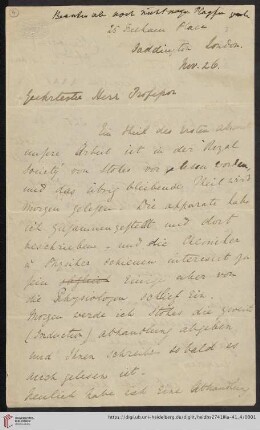 Beantw. ab noch nicht wegen
15 Eastern Place
Paddington London.
Nov. 26.
Geehrtester Herr Professor
Ein Theil des ersten
unsere Arbeit ist in der Royal
Society von Stokes vorgelesen worden
und das übrig bleibende Theil wird
morgen gelesen. Die apparate habe
ich zusammengestellt und dort
beschrieben - und die Chemiker
& Physiker schienen interessirt zu
sein Einige aber von
die Physiologen schlief ein.
Morgen werde ich Stokes die zweite
(Induction) abhandlung abgeben
und Ihnen schreibe sobald es
auch gelesen ist.
Neulich habe ich eine Abhandlung
https://digi.ub.uni-heidelberg.de/diglit/heidhs2741IIIa-41_4/0001